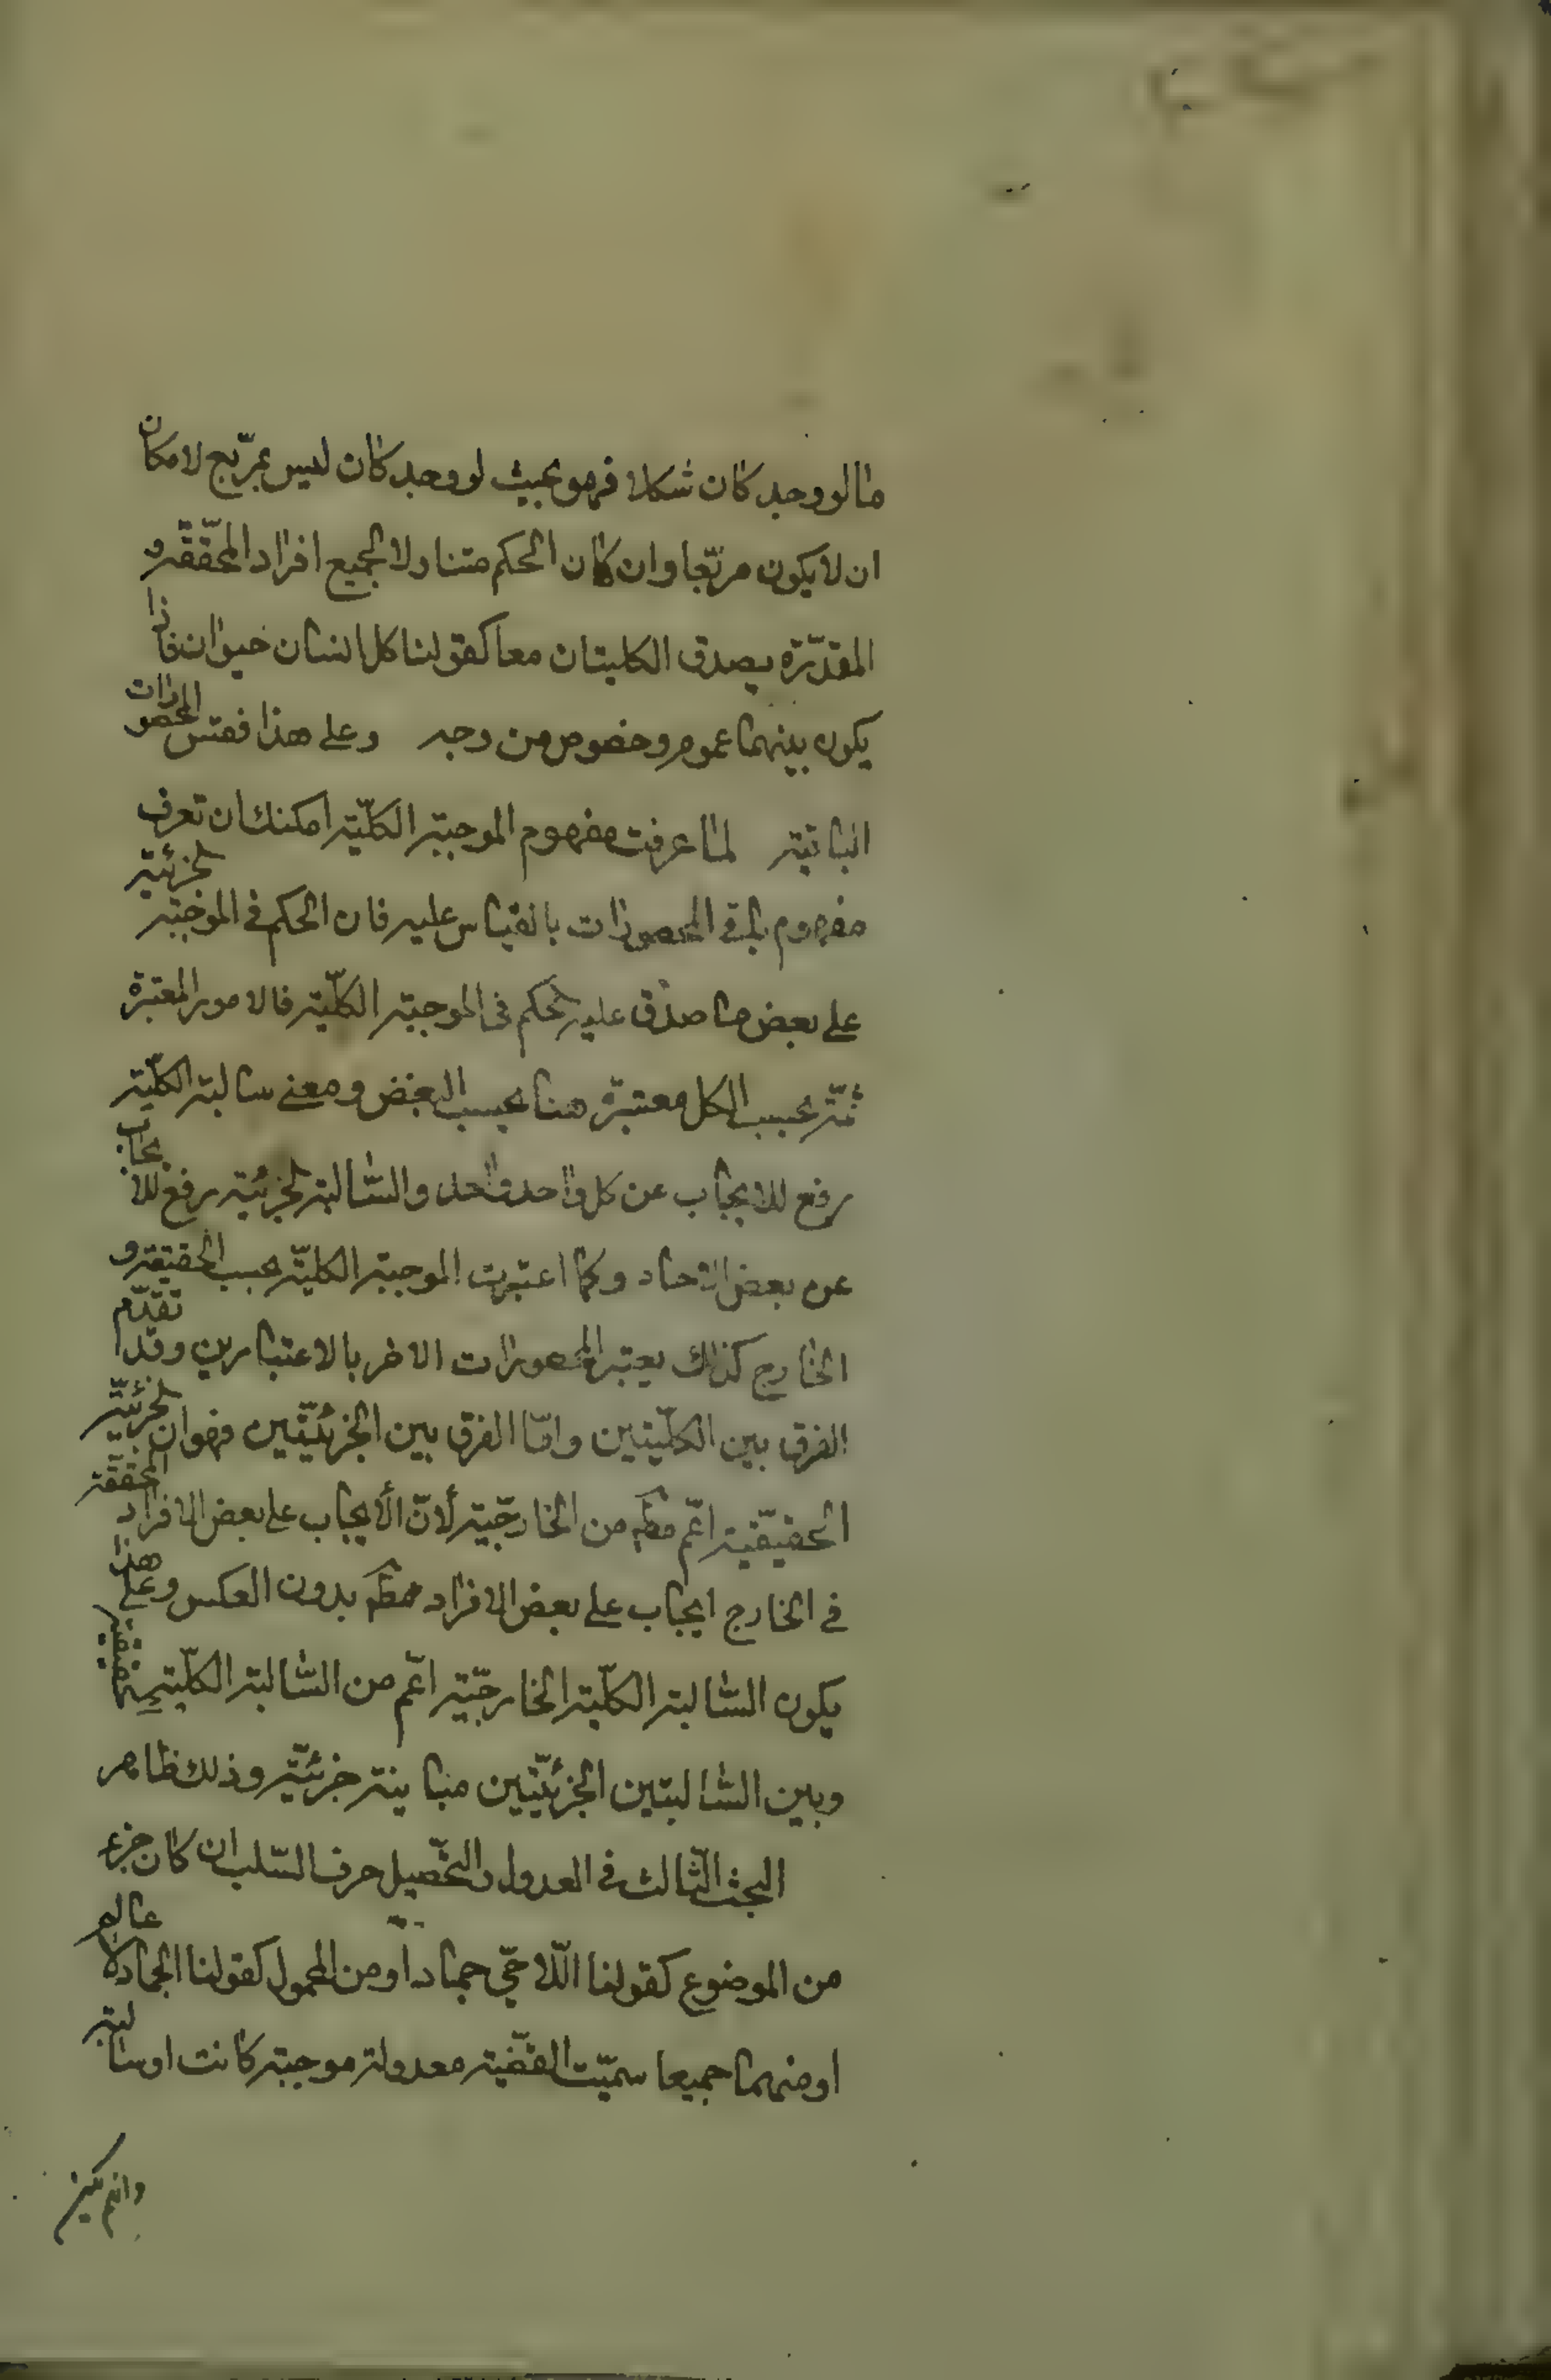 ما لو وجد كان شكلا فهو بحيث لو وجد كان ليس بمربّع لامكان
ان لا يكون مربّعا وان كان الحكم متناولا لجميع افراد المحقّقه و
المقدّره يصدق الكليتان معا كقولنا كل انسان حيوان فاذا
يكون بينهما عموم وخصوص من وجه وعلى هذا فقس المحصورات
الباقية لما عرفت مفهوم الموجبة الكلّية امكنك ان تعرف
مفهوم باقى المحصورات بالقياس عليه فان الحكم فى الموجبة الجزئية
على بعض ما صدق عليه الحكم فى الموجبة الكلّية فالامور المعتبرة
ثمّة بحسب الكل معتبرة هنا بحسب البعض ومعنى سالبة الكلّية
رفع للايجاب عن كل واحد واحد والسّالبة الجزئية رفع للايجاب
عن بعض الاحاد وكما اعتبرت الموجبة الكليّة بحسب الحقيقة و
الخارج كذلك يعتبر المحصورات الاخر بالاعتبارين وقد تقدّم
الفرق بين الكلّيتين وامّا الفرق بين الجزئيّتين فهو ان الجزئيّة
الحقيقّية اعّم مطم من الخارجّية لأنّ الأيجاب على بعض الافراد المحققة
فى الخارج ايجاب على بعض الافراد مطم بدون العكس وعلى هذا
يكون السّالبة الكلّية الخارجيّة اعّم من السّالبة الكلّية الحقيقية
وبين السّالبتين الجزئيّتين مباينة جزئيّة وذلك ظاهر
البحث الثّالث فى العدول والتحّصيل حرف السّلب ان كان جزء
من الموضوع كقولنا اللّاحّى جماد او من المحمول كقولنا الجماد لا عالم
او منهما جميعا سميّت القضّية معدولة موجبة كانت او سالبة